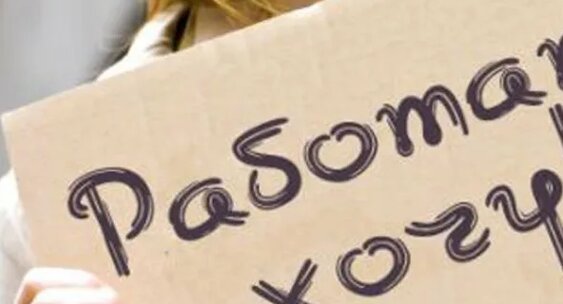 Работат
хочу